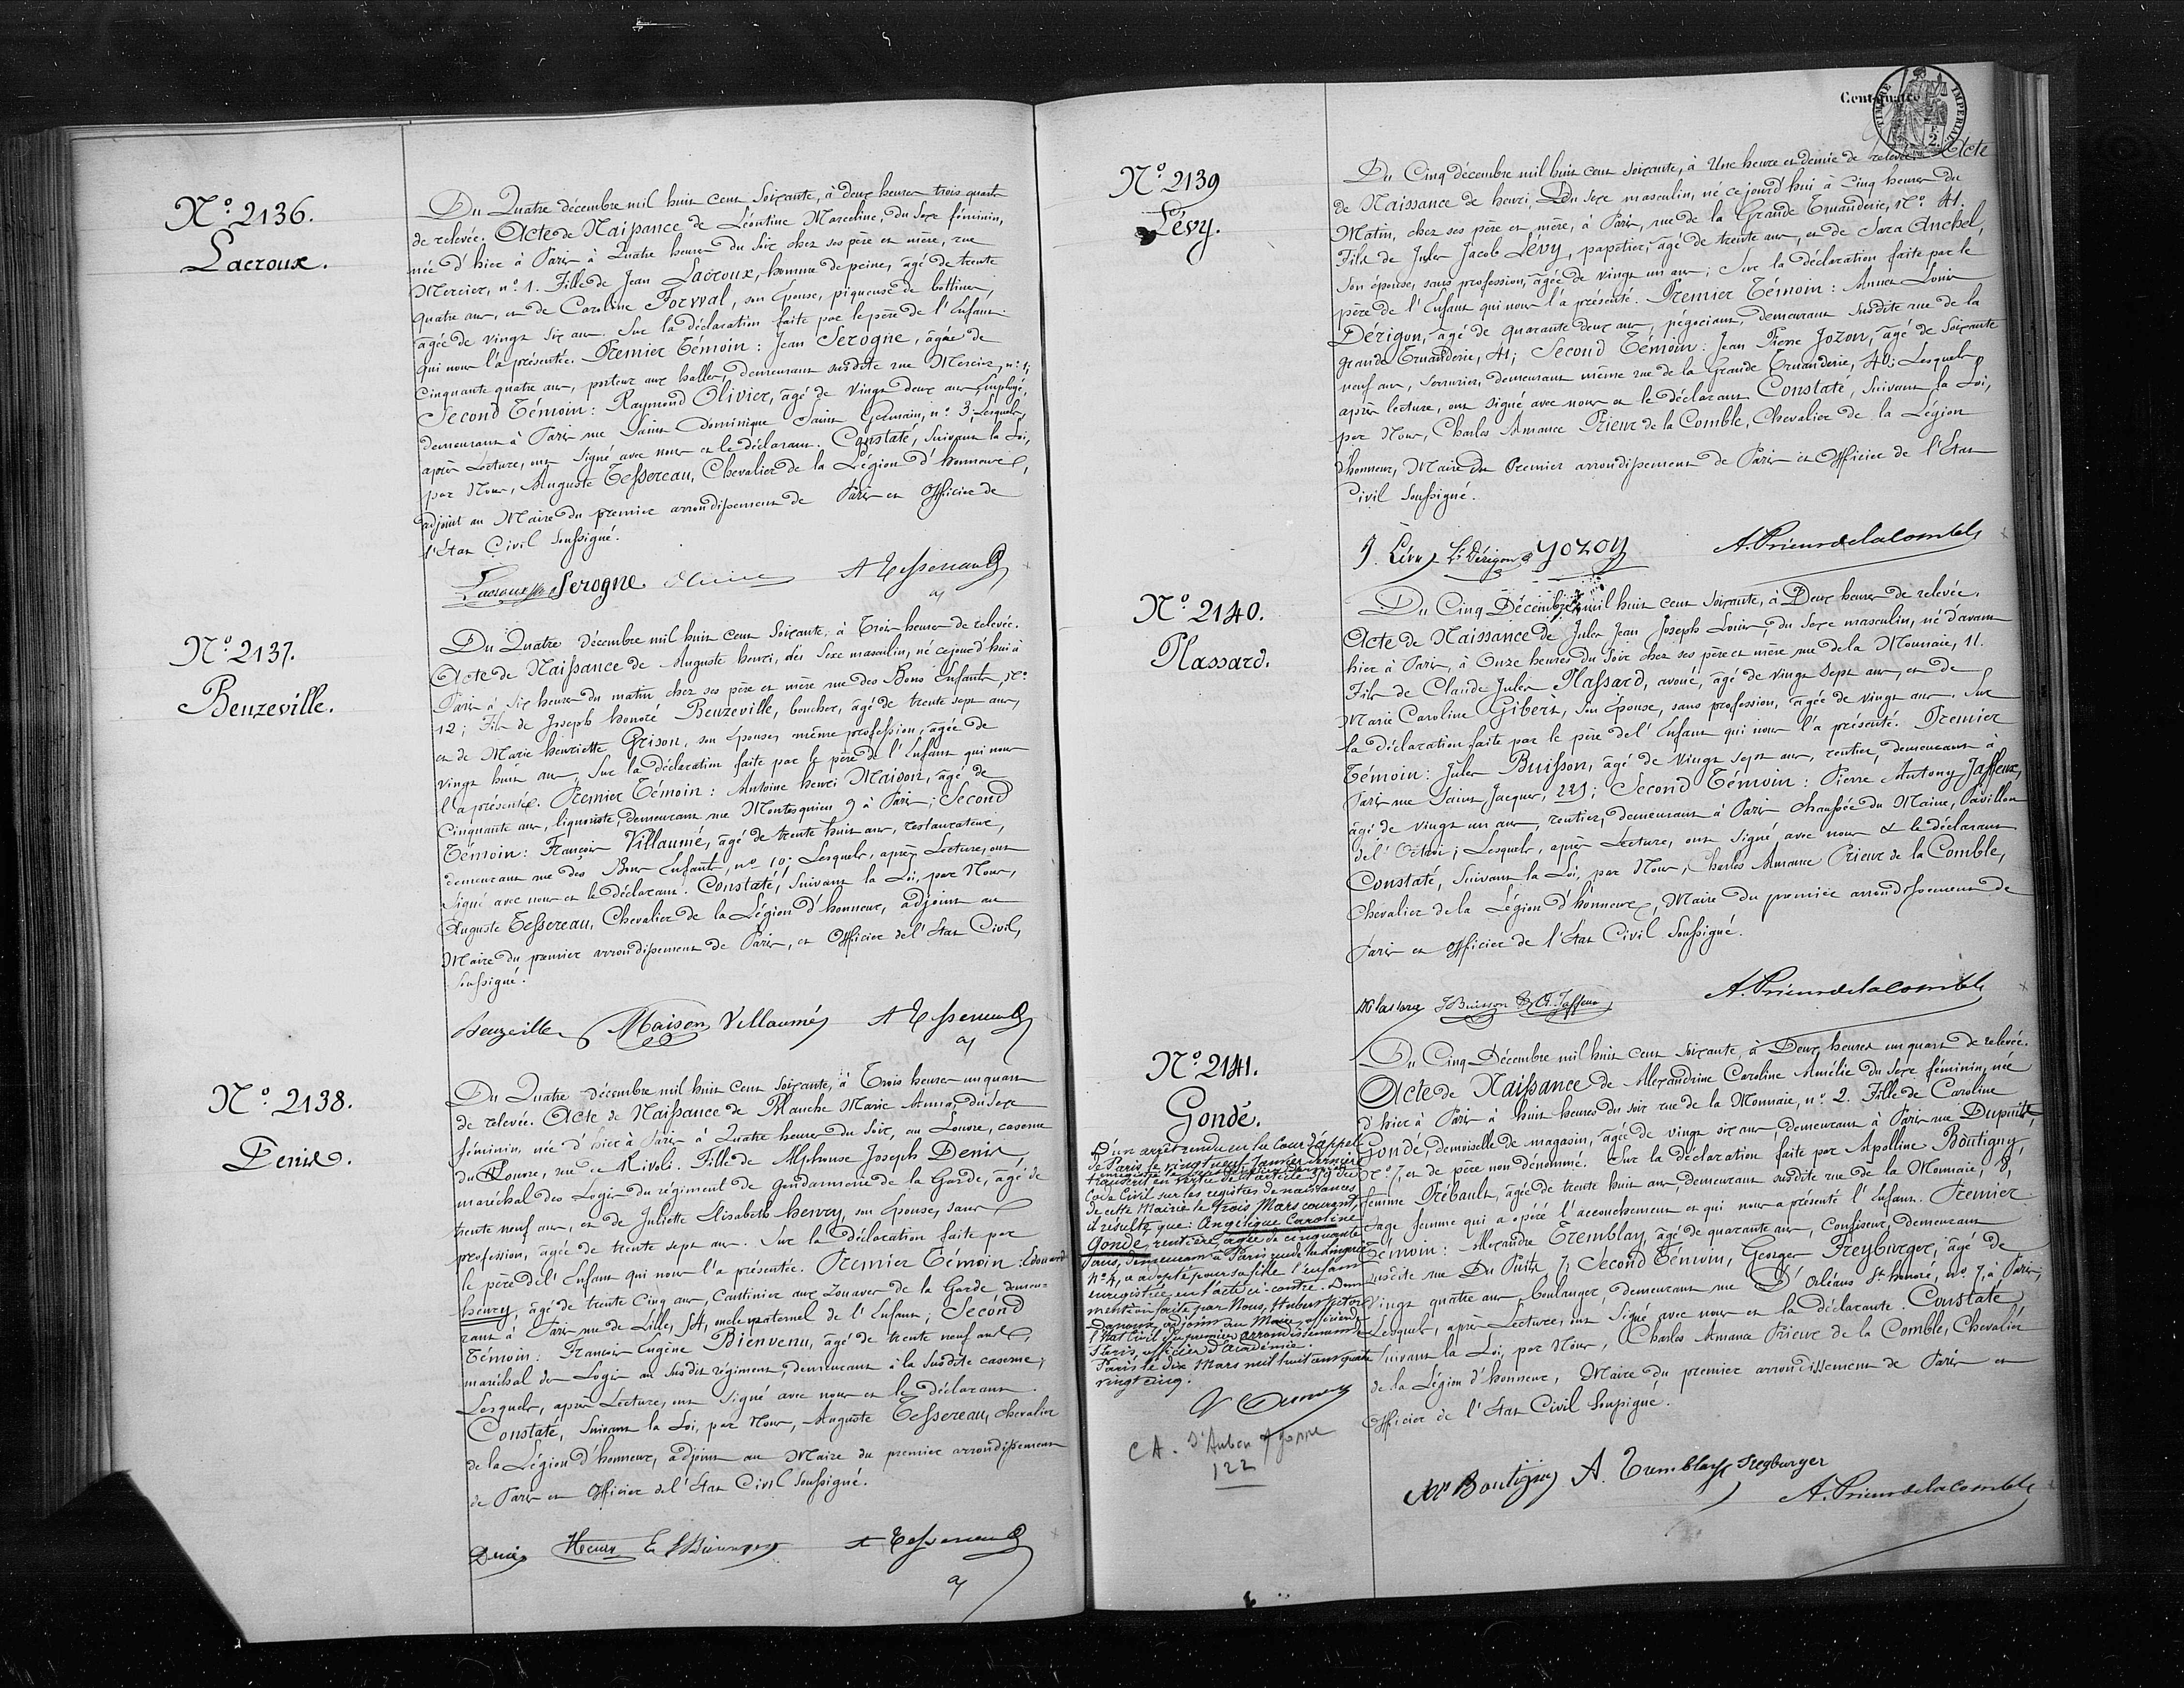 N.º 2136.
Lacroux.
Du Quatre décembre mil huit cent Soixante, à deux heures trois quarts
de relevée. Acte de Naissance de Léontine Marceline, du Sexe féminin,
née d'hier à Paris à Quatre heures du Soir chez ses père et mère, rue
Mercier, n.º 1. Fille de Jean Lacroux, homme de peine, âgé de trente
quatre ans, et de Caroline Forwal, son Epouse, piqueuse de bottines,
âgée de vingt six ans. Sur la déclaration faite par le père de l'Enfant
qui nous l'a présentée. Premier Témoin : Jean Serogne, âgée de
Cinquante quatre ans, porteur aux halles, demeurant susdite rue Mercier, n.º 1;
Second Témoin : Raymond Olivier, âgé de Vingt deux ans, Employé,
demeurant à Paris rue Saint Dominique Saint Germain, n.º 3; Lesquels,
après Lecture, ont Signé avec nous et le déclarant. Constaté, Suivant la Loi,
par Nous, Auguste Tessereau, Chevalier de la Légion d'honneur,
adjoint au Maire du premier arrondissement de Paris et Officier de
l'Etat Civil Soussigné.
Lacroux Serogne Olivier ATessereau
N.º 2137.
Beuzeville.
Du Quatre décembre mil huit cent Soixante, à Trois heures de relevée.
Acte de Naissance de Auguste henri, du Sexe masculin, né cejourd'hui à
Paris à Six heures du matin chez ses père et mère rue des Bons Enfants, N.º
12; Fils de Joseph honoré Beuzeville, boucher, âgé de trente sept ans,
et de Marie henriette Grison, son Epouse, même profession, âgée de
vingt huit ans, Sur la déclaration faite par le père de l'Enfant qui nous
l'a présenté. Premier Témoin : Antoine henri Maison, âgé de
Cinquante ans, liquoriste, demeurant rue Montesquieu 9 à Paris; Second
Témoin : François Villaumé, âgé de trente huit ans, restaurateur,
demeurant rue des Bons Enfants, n.º 10; Lesquels, après Lecture, ont
Signé avec nous et le déclarant. Constaté, Suivant la Loi, par Nous,
Auguste Tessereau, Chevalier de la Légion d'honneur, adjoint au
Maire du premier arrondissement de Paris, et Officier de l'Etat Civil,
Soussigné.
Beuzeville Maison Villaumé ATessereau
N.º 2138.
Denis.
Du Quatre décembre mil huit Cent Soixante, à Trois heures un quart
de relevée. Acte de Naissance de Blanche Marie Anna, du Sexe
féminin, née d'hier à Paris à Quatre heures du Soir, au Louvre, caserne
du Louvre, rue de Rivoli. Fille de Alphonse Joseph Denis,
maréchal des Logis du régiment de gendarmerie de la Garde, âgé de
trente neuf ans, et de Juliette Elisabeth henry, son Epouse, sans
profession, âgée de trente sept ans. Sur la déclaration faite par
le père de l'Enfant qui nous l'a présentée. Premier Témoin : Edouard
henry, âgé de trente Cinq ans, Cantinier aux Zouaves de la Garde demeu=
rant à Paris rue de Lille, 54, oncle maternel de l'Enfant; Second
Témoin : François Eugène Bienvenu, âgé de trente neuf ans,
maréchal des Logis au Susdit régiment, demeurant à la Susdite caserne;
Lesquels, après Lecture, ont Signé avec nous et le déclarant.
Constaté, Suivant la Loi, par Nous, Auguste Tessereau, chevalier
de la Légion d'honneur, adjoint au Maire du premier arrondissement
de Paris et Officier de l'Etat Civil Soussigné.
Denis Henry E ATessereau
Cent quatre
TIMBRE IMPERIAL
N.º 2139
Lévy.
Du Cinq décembre mil huit cent Soixante, à Une heure et demie de relevée. Acte
de Naissance de henri, du Sexe masculin, né ce jourd'hui à Cinq heures du
Matin, chez ses père et mère, à Paris, rue de la Grande Truanderie, N.º 41.
Fils de Jules Jacob Lévy, papetier, âgé de trente ans, et de Sara Anchel,
Son épouse, sans profession, âgée de vingt un ans; Sur la déclaration faite par le
père de l'Enfant qui nous l'a présenté. Premier Témoin : Annet Louis
Dérigon, âgé de quarante deux ans, négociant, demeurant Susdite rue de la
grande Truanderie, 41; Second Témoin : Jean Pierre Jozon, âgé de Soixante
neuf ans, Serrurier, demeurant même rue de la Grande Truanderie, 40; Lesquels
après lecture, ont signé avec nous et le déclarant Constaté, Suivant la Loi,
par Nous, Charles Amance Prieur de la Comble, Chevalier de la Légion
d'honneur, Maire du Premier arrondissement de Paris et Officier de l'Etat
Civil Soussigné.
J. Lévy Ls Dérigon JOZON A. Prieurdelacomble
N.º 2140.
Plassard.
Du Cinq Décembre mil huit cent Soixante, à Deux heures de relevée.
Acte de Naissance de Jules Jean Joseph Louis, du Sexe masculin, né d'avant
hier à Paris, à Onze heures du Soir chez ses père et mère rue de la Monnaie, 11.
Fils de Claude Jules Plassard, avoué, âgé de vingt Sept ans, et de
Marie Caroline Gibert, Son Epouse, sans profession, âgée de vingt ans. Sur
la déclaration faite par le père de l'Enfant qui nous l'a présenté. Premier
Témoin : Jules Buisson, âgé de Vingt Sept ans, rentier, demeurant à
Paris rue Saint Jacques, 221; Second Témoin : Pierre Antony Jaffeux,
âgé de vingt un ans, rentier, demeurant à Paris chaussée du Maine, Pavillon
de l'Octroi; Lesquels, après Lecture, ont Signé avec nous & le déclarant
Constaté, Suivant la Loi, par Nous, Charles Amance Prieur de la Comble,
Chevalier de la Légion d'honneur, Maire du premier arrondissement de
Paris et Officier de l'Etat Civil Soussigné.
Plassard JBuisson A. Jaffeux A. Prieurdelacomble
N.º 2141.
Gondé.
D'un arrêt rendu en la Cour d'Appel
de Paris, le vingt neuf Janvier dernier
transcrit en vertu de l'article 359 du
Code Civil sur les registres de naissances
de cette Mairie le trois Mars courant,
il résulte que : Angélique Caroline
Gondé, rentière, âgée de cinquante
ans, demeurant à Paris rue de la Lingerie
N.º 4, a adopté pour sa fille l'enfant
enregistrée en l'acte ci-contre. Dont
mention faite par Nous, Hubert Victor
Danoux, adjoint au Maire, officier de
l'Etat Civil du premier arrondissement de
Paris, officier d'Académie.
Paris le dix Mars mil huit cent quatre
vingt cinq.
C A.
122
Du Cinq Décembre mil huit Cent Soixante, à Deux heures un quart de relevée.
Acte de Naissance de Alexandrine Caroline Amélie du Sexe féminin, née
d'hier à Paris à huit heures du soir rue de la Monnaie, n.º 2. Fille de Caroline
Gondé, demoiselle de magasin, âgée de vingt six ans, demeurant à Paris rue Dupuits,
N.º 7, et de père non dénommé. Sur la déclaration faite par Apolline Boutigny,
femme Prébault, âgée de trente huit ans, demeurant susdite rue de la Monnaie, 8,
Sage femme qui a opéré l'accouchement et qui nous a présenté l'Enfant. Premier
Témoin : Alexandre Tremblay, âgé de quarante ans, Confiseur, demeurant
susdite rue Du Puits 7; Second Témoin, Georges Freyburger, âgé de
Vingt quatre ans boulanger, demeurant rue D'Orléans St honoré, n.º 7, à Paris;
Lesquels, après Lecture, ont Signé avec nous et la déclarante. Constaté
Suivant la Loi, par Nous, Charles Amance Prieur de la Comble, Chevalier
de la Légion d'honneur, Maire du premier arrondissement de Paris et
Officier de l'Etat Civil Soussigné.
Boutigny A. Tremblay Freyburger
A. Prieurdelacomble